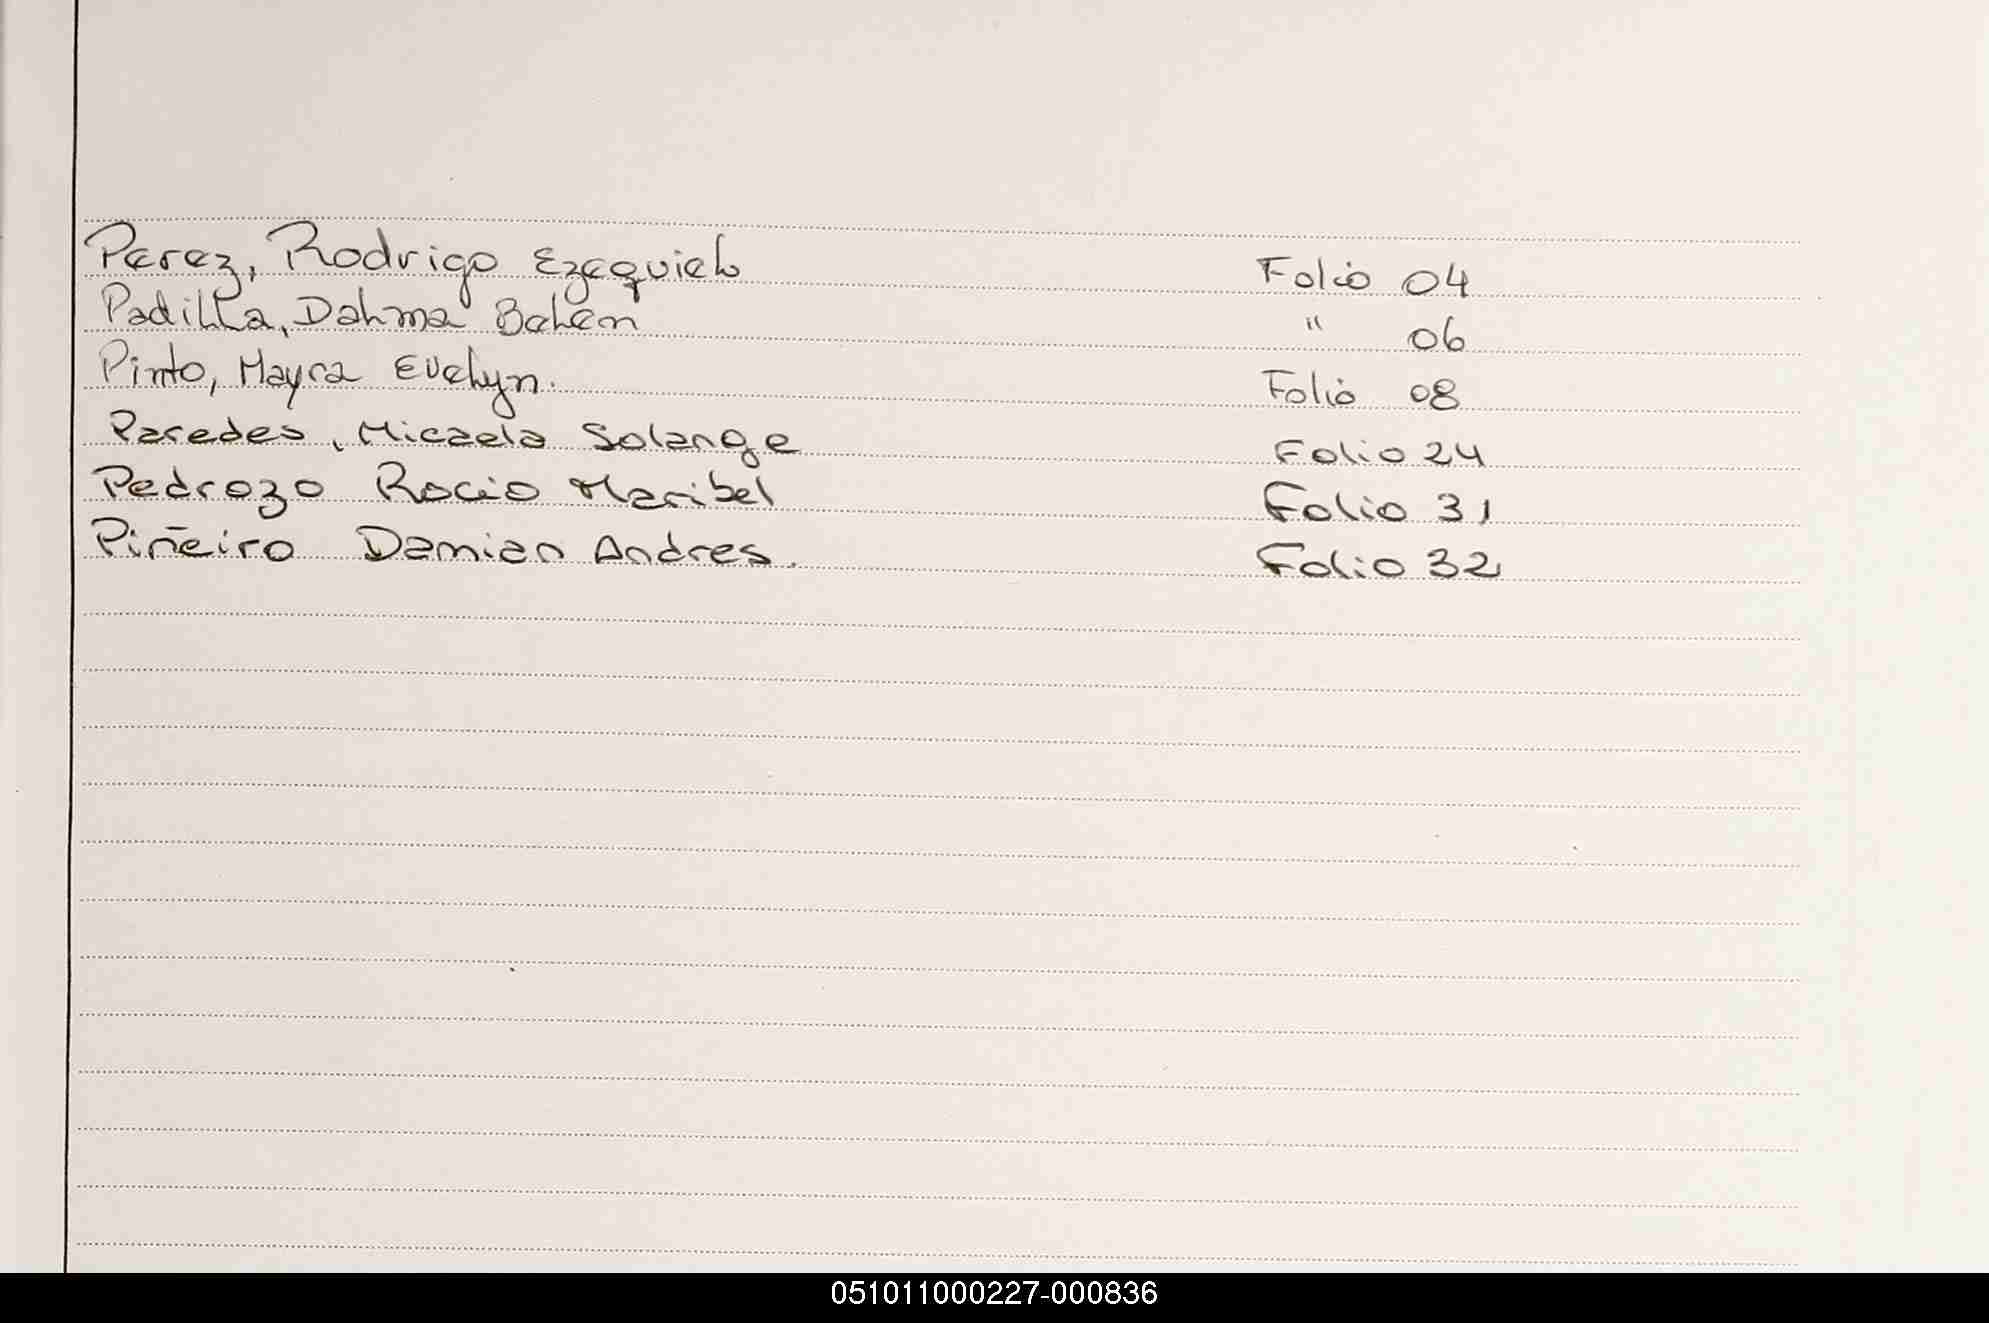 Perez, Rodrigo Ezequiel Folio 04
Padilla, Dahma Belen " 06
Pinto, Mayra Evelyn. Folio 08
Paredes, Micaela Solange Folio 24
Pedrozo Rocio Maribel Folio 31
Piñeiro Damian Andres. Folio 32
051011000227-000836